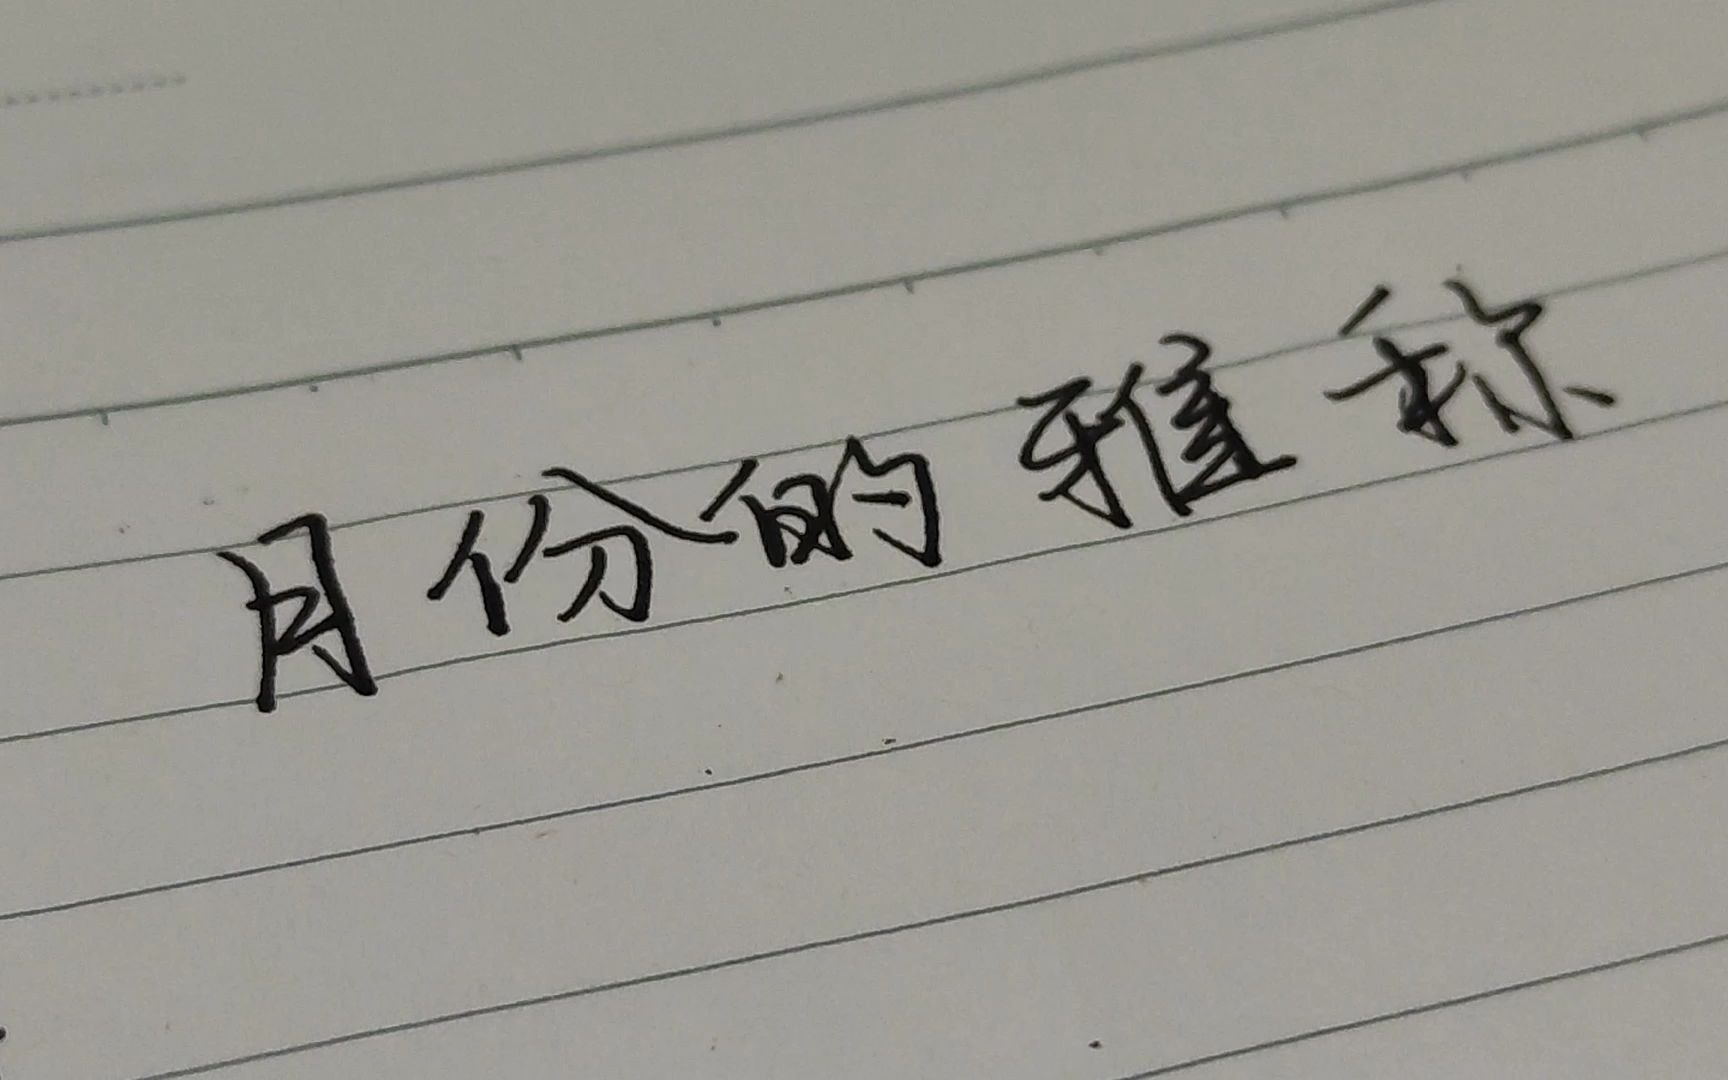 月份的雅称